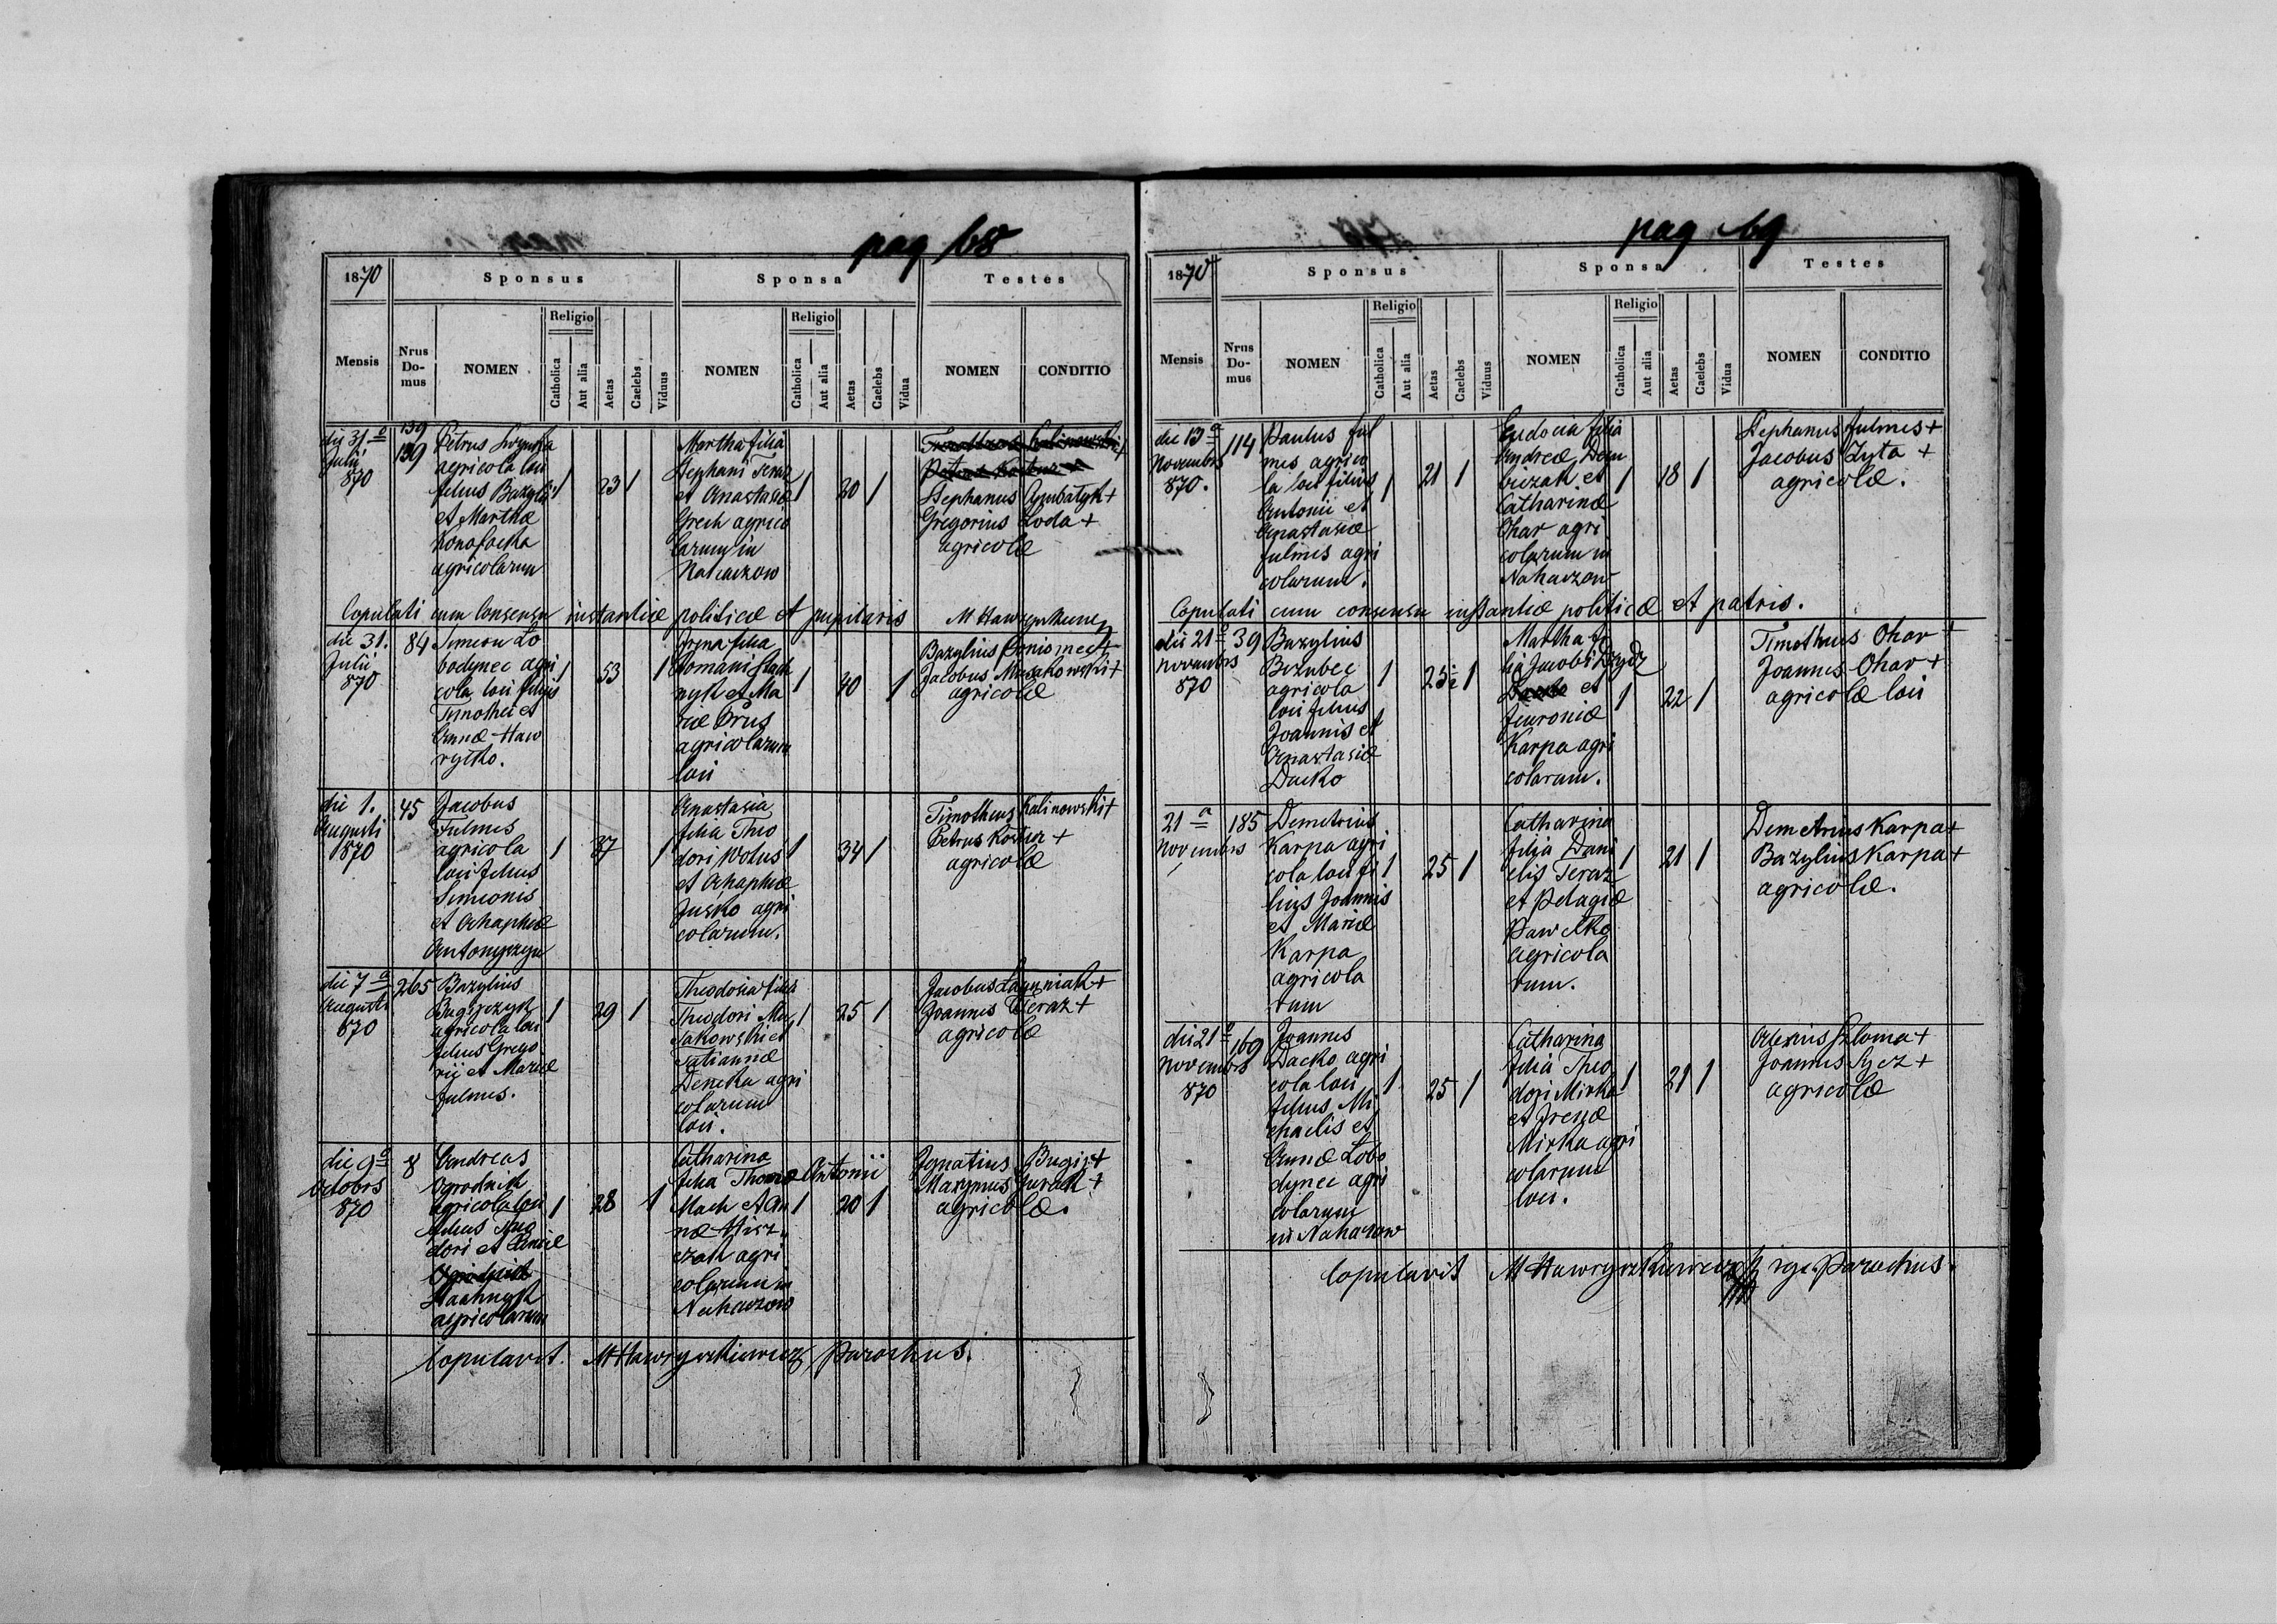 pag 68
1870
Sponsus
Sponsa
Testes
Mensis
Nrus Domus
NOMEN
Religio
Catholica
Aut alia
Aetas
Caelebs
Viduus
NOMEN
Religio
Catholica
Aut alia
Aetas
Caelebs
Vidua
NOMEN
CONDITIO
die 31a
Julii
870
139
139
Petrus
agricola loci
filius Bazylii
et Marthæ
agricolarum
1 23 1
Martha filia
Stephani Teraz
et Anastasiæ
Grech agrico
larum in
Nahaczow
1 20 1
Timotheus Kalinowski +
Petrus Kostur +
Stephanus +
Gregorius Loda +
agricolæ
Copulati cum consensu instantiæ politicæ et pupilaris
die 31.
Julii
870
84
Simeon Lo
bodynec agri
cola loci filius
Timothei et
Annæ Haw
rylko.
1 53 1
Irena filia
Romani
et Ma
riæ Prus
agricolarum
loci
1 40 1
Bazylius +
Jacobus +
agricolæ
die 1.
Augusti
1870
45
Jacobus
Fulmes
agricola
loci filius
Simeonis
et Ahaphiæ
1 37 1
Anastasia
filia Theo
dori Wolus
et Ahaphiæ
Jusko agri
colarum.
1 34 1
Timotheus Kalinowski +
Petrus Kostur +
agricolæ
die 7a
Augusti
870
265
Bazylius
agricola loci
filius Grego
rii et Mariæ
Fulmes.
1 29 1
Theodosia filia
Theodori Ma
zakowski et
Tatiannæ
Deneka agri
colarum
loci.
1 25 1
Jacobus +
Joannes Teraz +
agricolæ
die 9a
Octobris
870
8
Andreas
Ogrodnik
agricola loci
filius Theo
dori et
Ogrodnik
agricolarum
1 28 1
Catharina
filia Thomæ Antonii
Mach et An
næ Hisz
czak agri
colarum in
Nahaczow
1 20 1
Ignatius +
Maxymus +
agricolæ.
Copulavit. M Hawryszkiewicz Parochus.
pag 69
1870
Sponsus
Sponsa
Testes
Mensis
Nrus Domus
NOMEN
Religio
Catholica
Aut alia
Aetas
Caelebs
Viduus
NOMEN
Religio
Catholica
Aut alia
Aetas
Caelebs
Vidua
NOMEN
CONDITIO
die 13a
Novembris
870.
114
Paulus Ful
mes agrico
la loci filius
Antonii et
Anastasiæ
Fulmes agri
colarum.
1 21 1
Eudocia filia
Andreæ Dem
biczak et
Catharinæ
Ohar agri
colarum in
Nahaczow
1 18 1
Stephanus Fulmes +
Jacobus Zyta +
agricolæ.
Copulati cum consensu instantiæ politicæ et patris.
die 21a
Novembris
870
39
Bazylius
Bezubec
agricola
loci filius
Joannis et
Anastasiæ
Dacko
1 25 1
Martha fi
lia Jacobi
et
Fewroniæ
Karpa agri
colarum.
1 22 1
Timotheus Ohar +
Joannes Ohar +
agricolæ loci
21a
Novembris
185
Demetrius
Karpa agri
cola loci fi
lius Joannis
et Mariæ
Karpa
agricola
rum
1 25 1
Catharina
filia Dani
elis Teraz
et Pelagiæ
Pawelko
agricola
rum.
1 21 1
Demetrius Karpa +
Bazylius Karpa +
agricolæ.
die 21a
Novembris
870
169
Joannes
Dacko agri
cola loci
filius Mi
chaelis et
Annæ Lobo
dynec agri
colarum
in Nahaczow
1 25 1
Catharina
filia Theo
dori Mirka
et Irenæ
Mirka agri
colarum
loci.
1 21 1
Alexius Szloma +
Joannes Sycz +
agricolæ
Copulavit M Hawryszkiewicz Parochus.